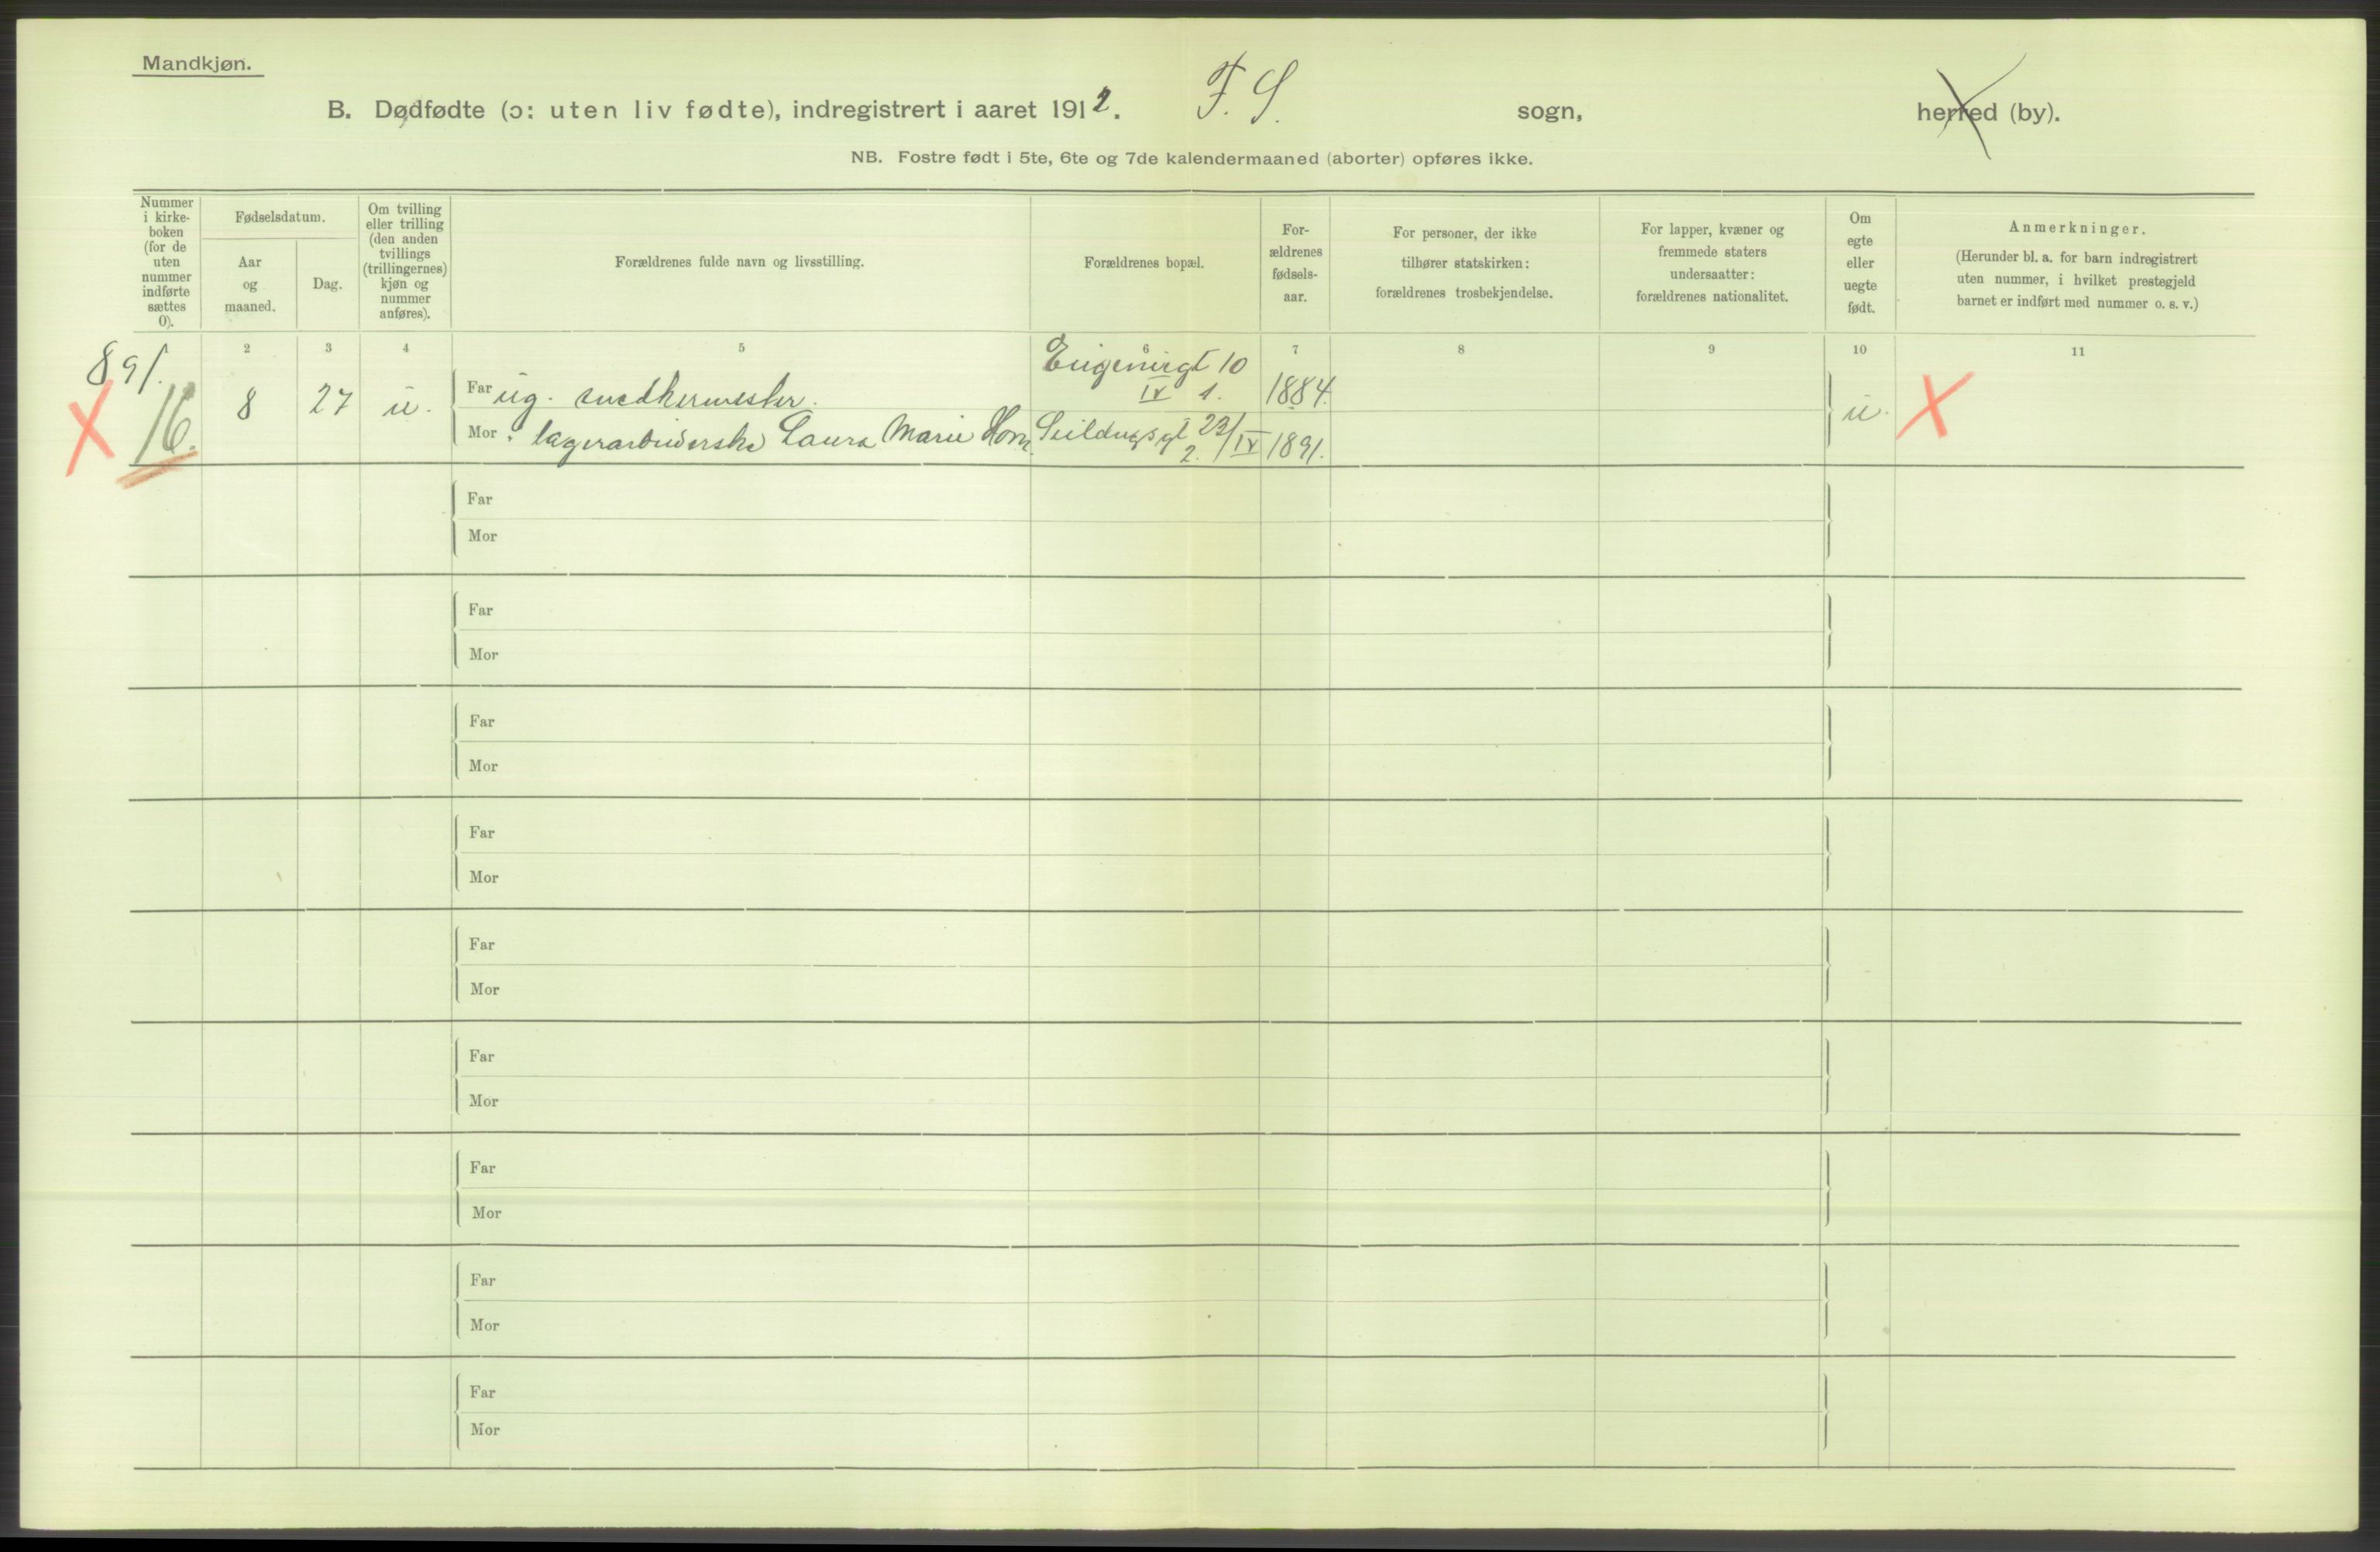 Mandkjøn.
B. Dødfødte (ɔ: uten liv fødte), indregistrert i aaret 1912. F. S. sogn, herred (by).
NB. Fostre født i 5te, 6te og 7de kalendermaaned (aborter) opføres ikke.
Nummer
i kirke-
boken
(for de
uten
nummer
indførte
sættes
0).
Fødselsdatum.
Aar
og
maaned.
Dag.
Om tvilling
eller trilling
(den anden
tvillings
(trillingernes)
kjøn og
nummer
anføres).
Forældrenes fulde navn og livsstilling.
Forældrenes bopæl.
For-
ældrenes
fødsels-
aar.
For personer, der ikke
tilhører statskirken:
forældrenes trosbekjendelse.
For lapper, kvæner og
fremmede staters
undersaatter:
forældrenes nationalitet.
Om
egte
eller
uegte
født.
Anmerkninger.
(Herunder bl. a. for barn indregistrert
uten nummer, i hvilket prestegjeld
barnet er indført med nummer o. s. v.)
1 2 3 4 5 6 7 8 9 10 11
891.
16.
8 27 u.
Far ug. snedkermester.
Eugeniigt 10
IV 1.
1884.
Mor lagerarbeiderske Laura Marie Horn.
Seildugsgt 23/IV
2.
1891.
u.
Far
Mor
Far
Mor
Far
Mor
Far
Mor
Far
Mor
Far
Mor
Far
Mor
Far
Mor
Far
Mor